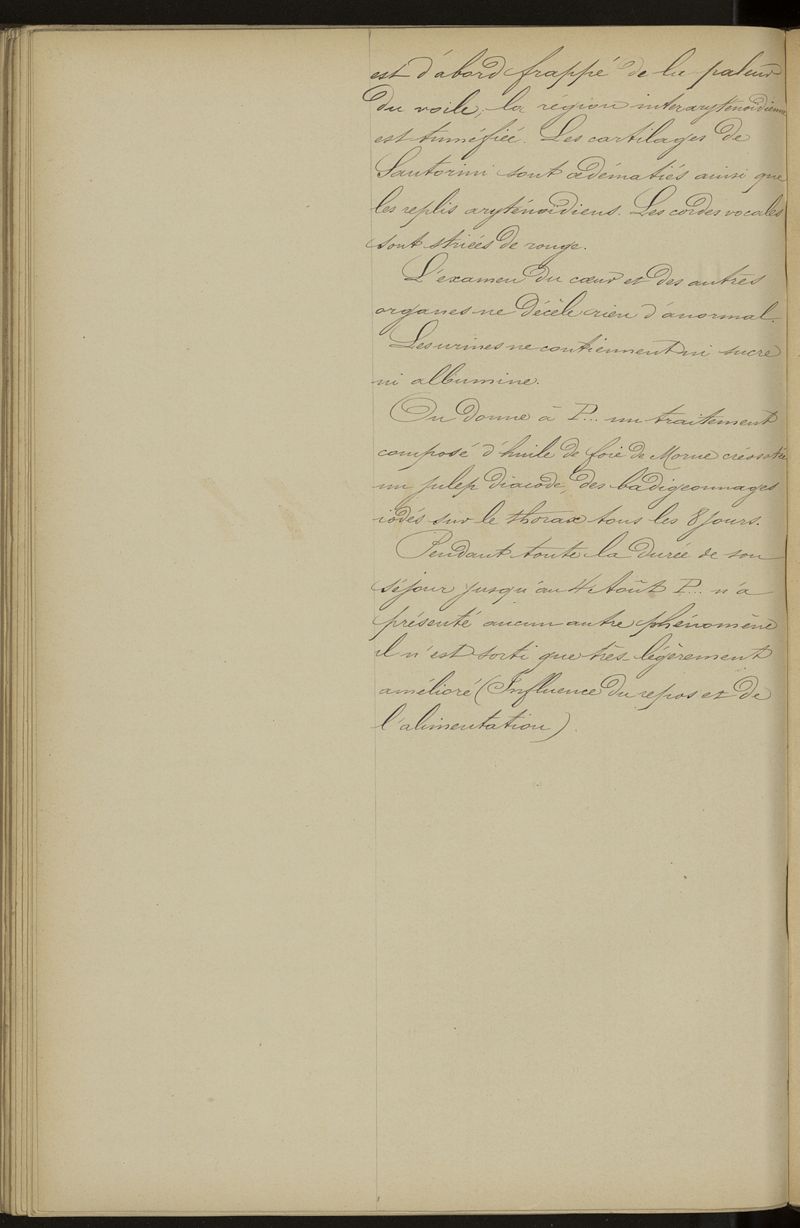 est d'abord frappé de la paleur
du voile, la région interaryténoïdienne
est tuméfiée. Les cartilages de
Santorini sont œdématiés ainsi que
les replis aryténoïdiens. Les cordes vocales
sont striées de rouge.
L'examen du cœur et des autres
organes ne décèle rien d'anormal.
Les urines ne contiennent ni sucre
ni albumine.
On donne à P... un traitement
composé d'huile de foie de Morue créosotée
un julep diacode, des badigeonnages
iodés sur le thorax tous les 8 jours.
Pendant toute la durée de son
séjour jusqu'au 4 Août P... n'a
présenté aucun autre phénomène
il n'est sorti que très légèrement
amélioré (Influence du repos et de
l'alimentation).